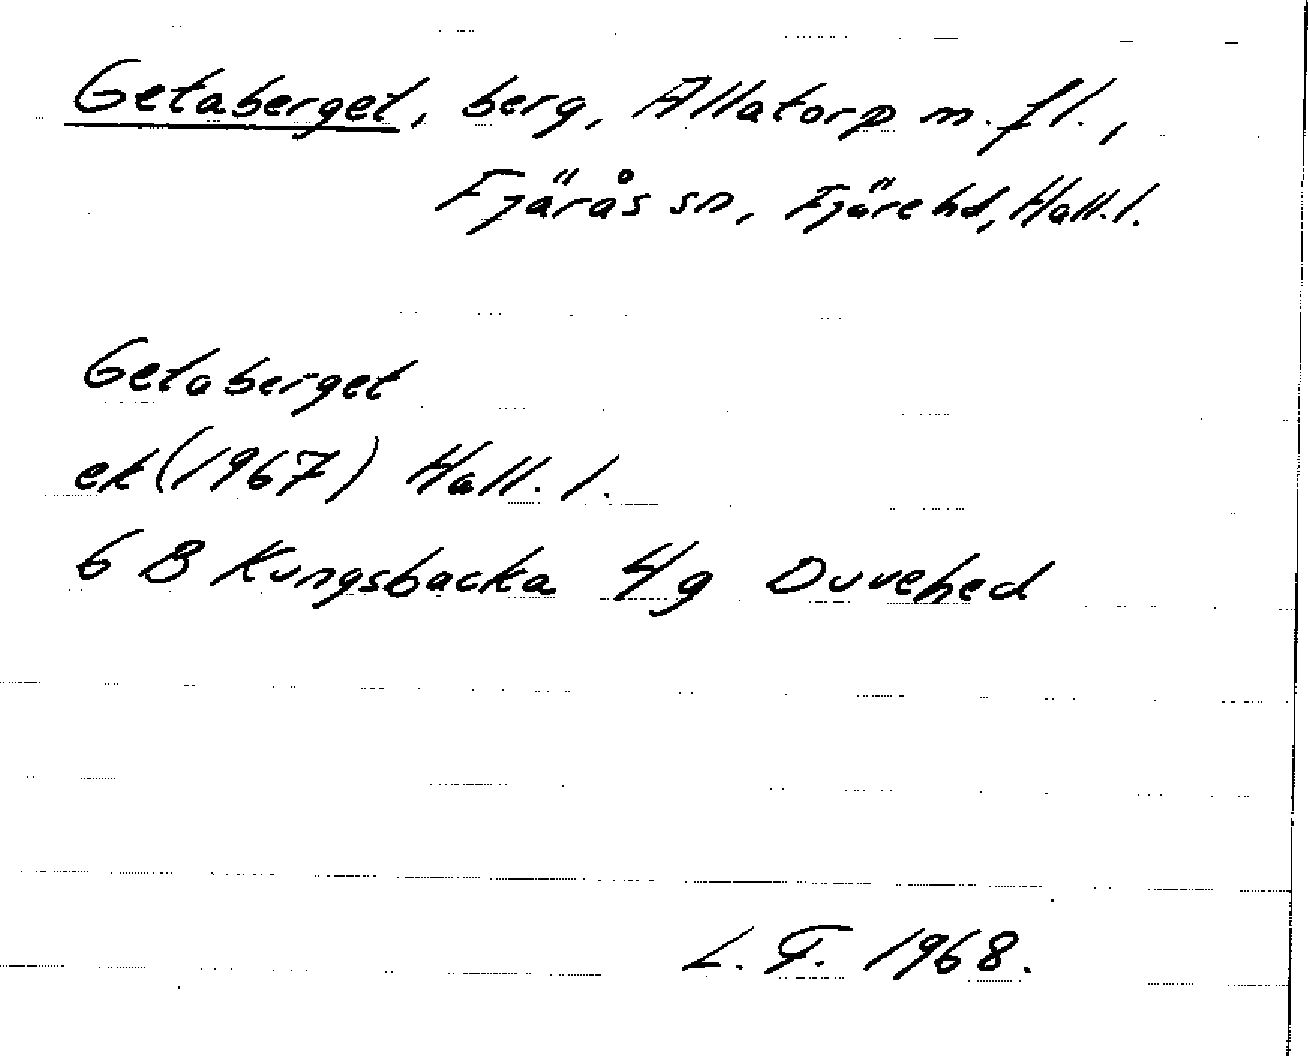 Getaberget, berg, Allatorp m. fl.,
Fjärås sn, Fjäre hd, Hall. l.
Getaberget
ek (1967) Hall. l.
6 B Kungsbacka 4g Duvehed
L. F. 1968.